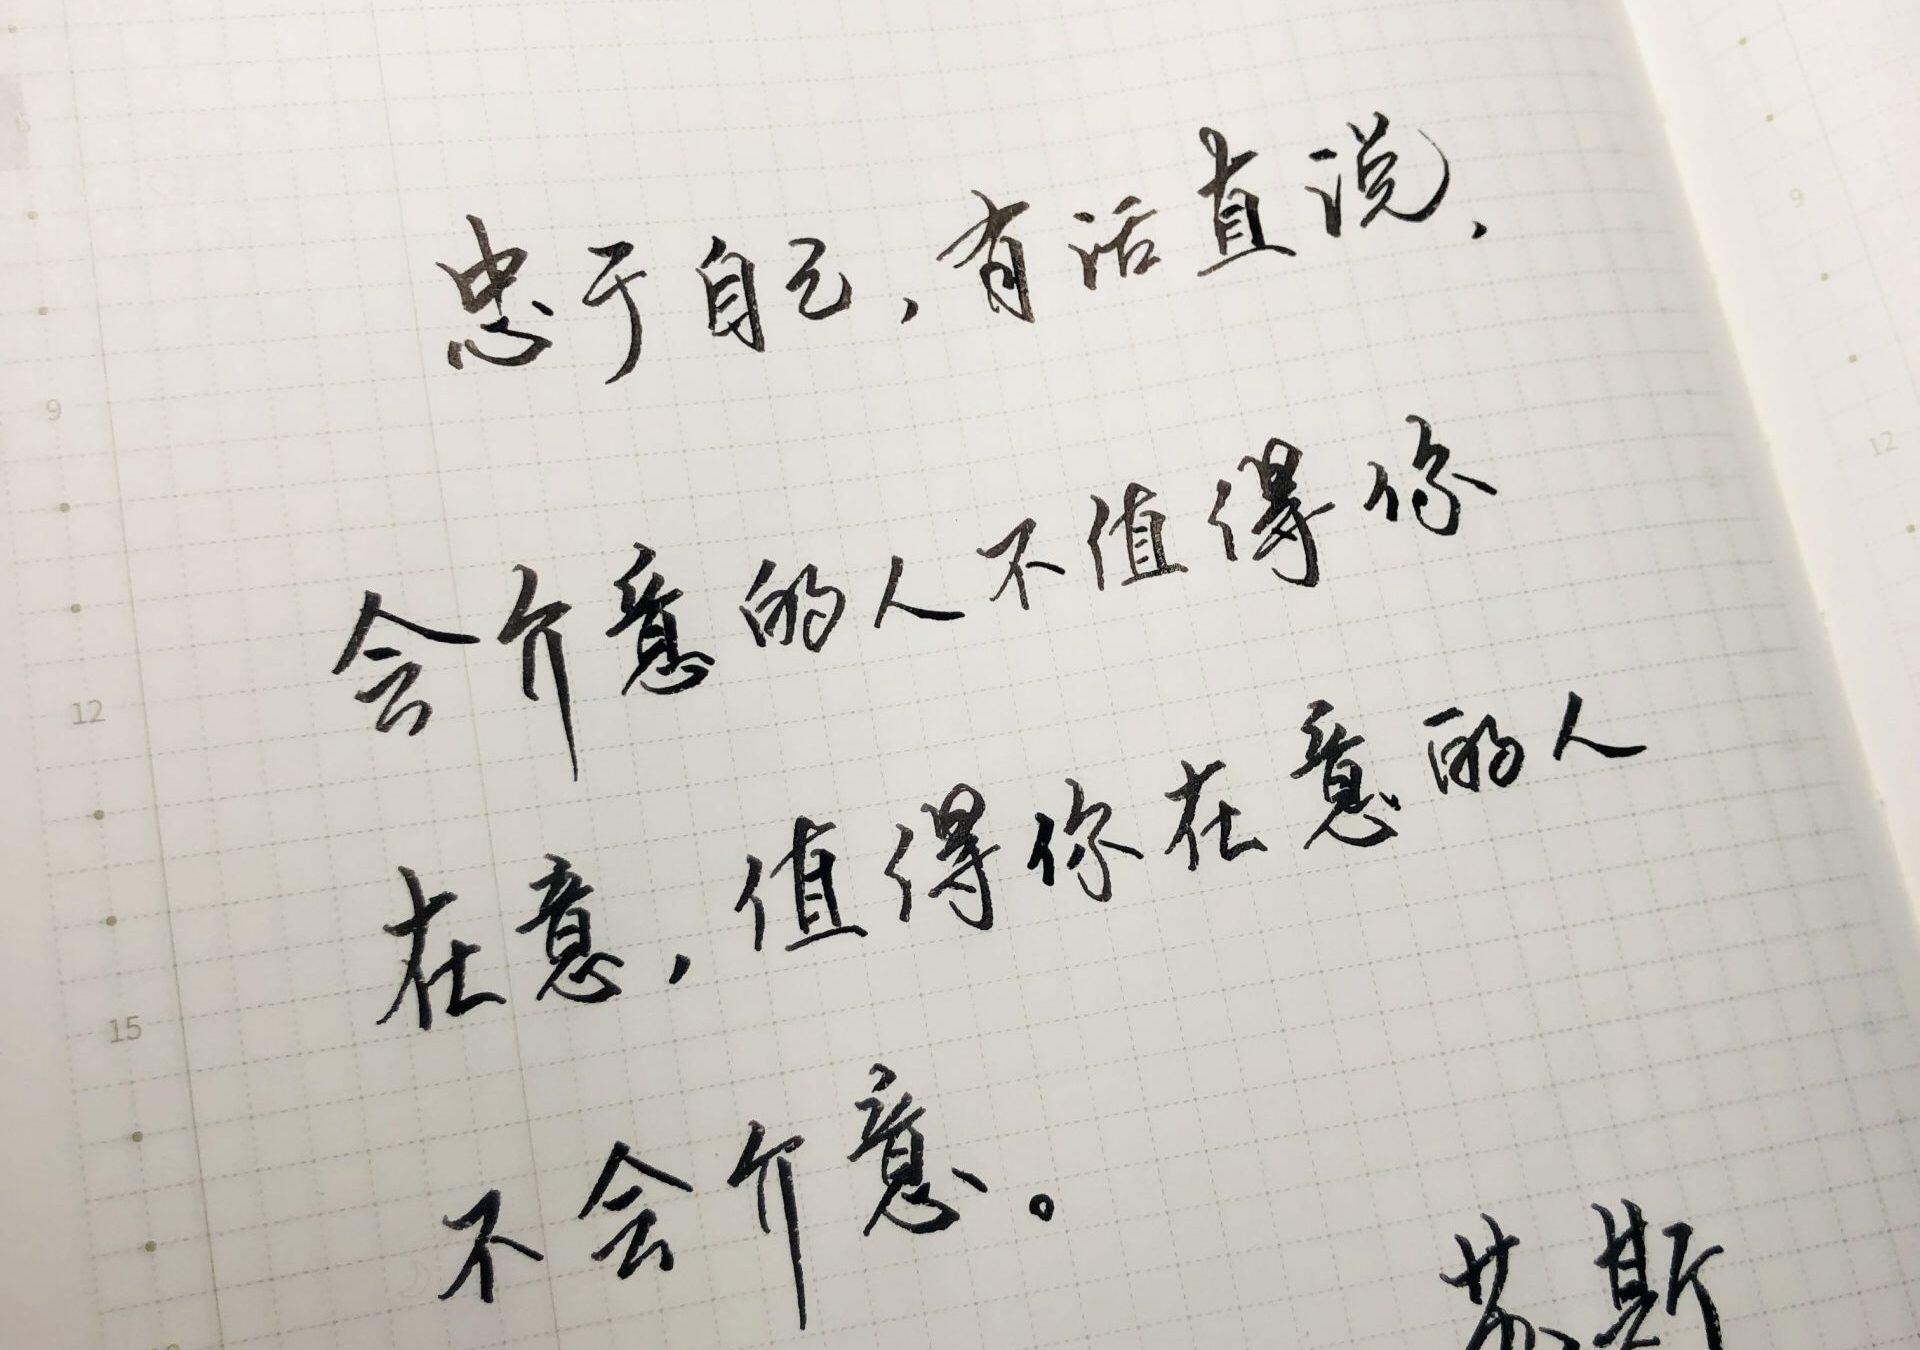 忠于自己,有话直说,
会介意的人不值得你
在意,值得你在意的人
不会介意。
苏斯
9
12
15
9
12